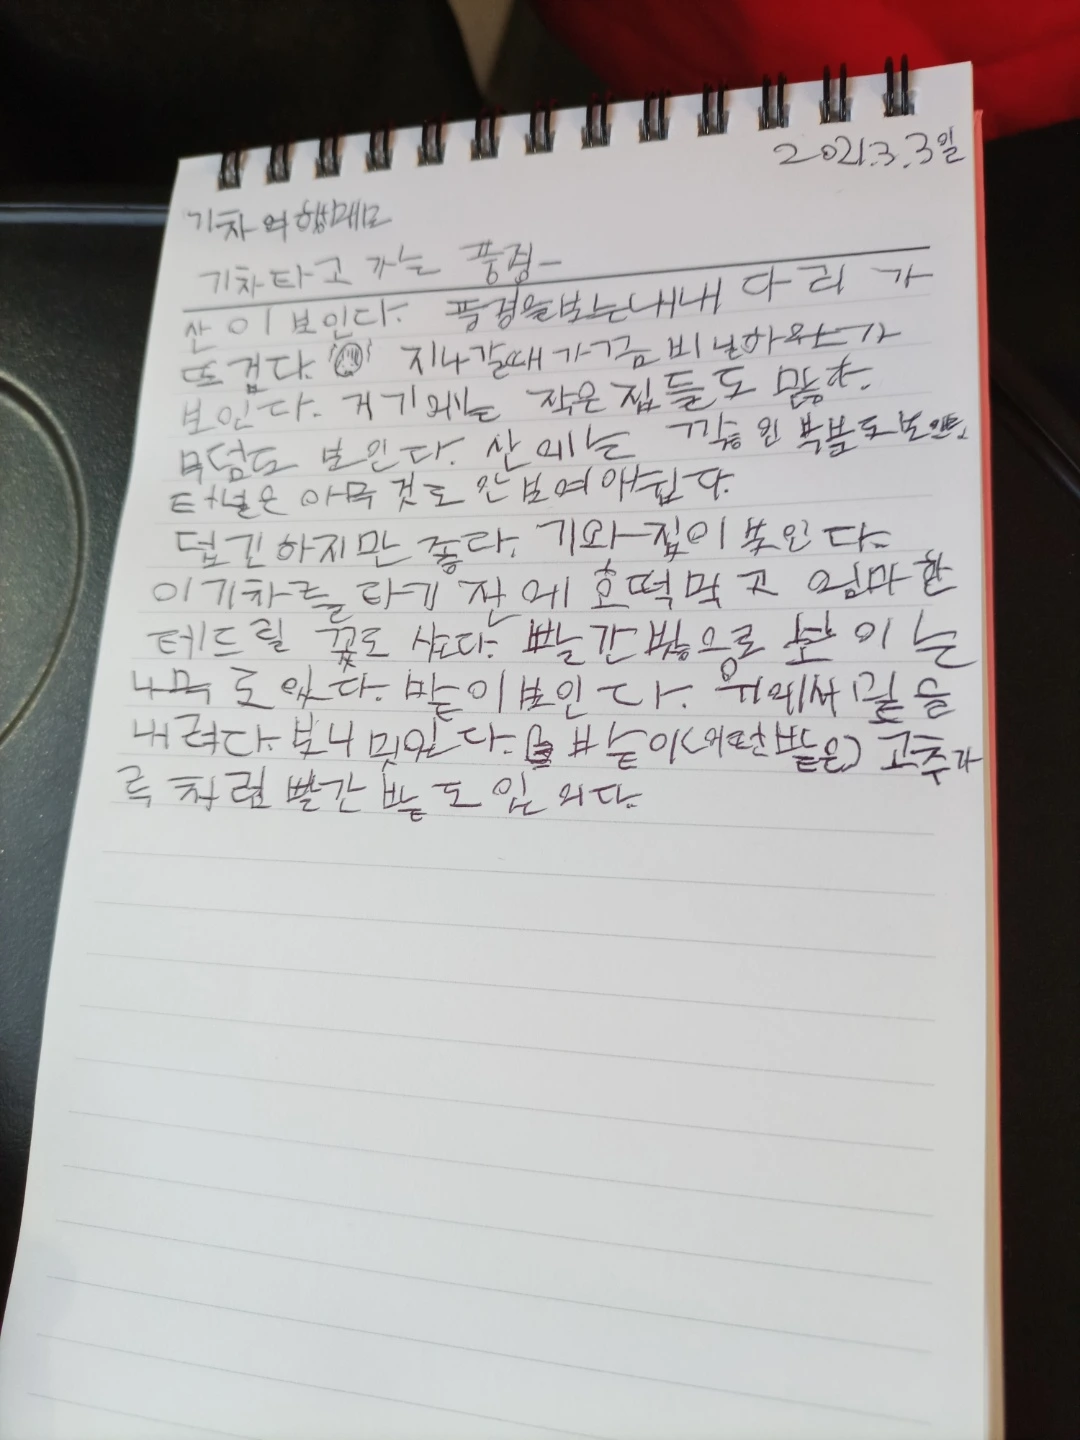 2021.3.3일
기차여행메모
기차타고 가는 풍경-
산이 보인다. 풍경을보는내내 다리가
뜨겁다. 지나갈때가끔비닐하우스가
보인다. 거기에는 작은 집들도 많다.
무덤도 보인다. 산에는 깎인 부분도보인다.
터널은 아무것도 안보여아쉽다.
덥긴하지만 좋다. 기와집이 보인다.
이기차를 타기 전에 호떡먹고 엄마한
테드릴 꽃도 샀다. 빨간밭으로 보이는
나무도 있다. 밭이보인다. 위에서 길을
내려다보니 멋있다. 밭이(어떤밭은) 고추가
루처럼 빨간 밭도 있다.